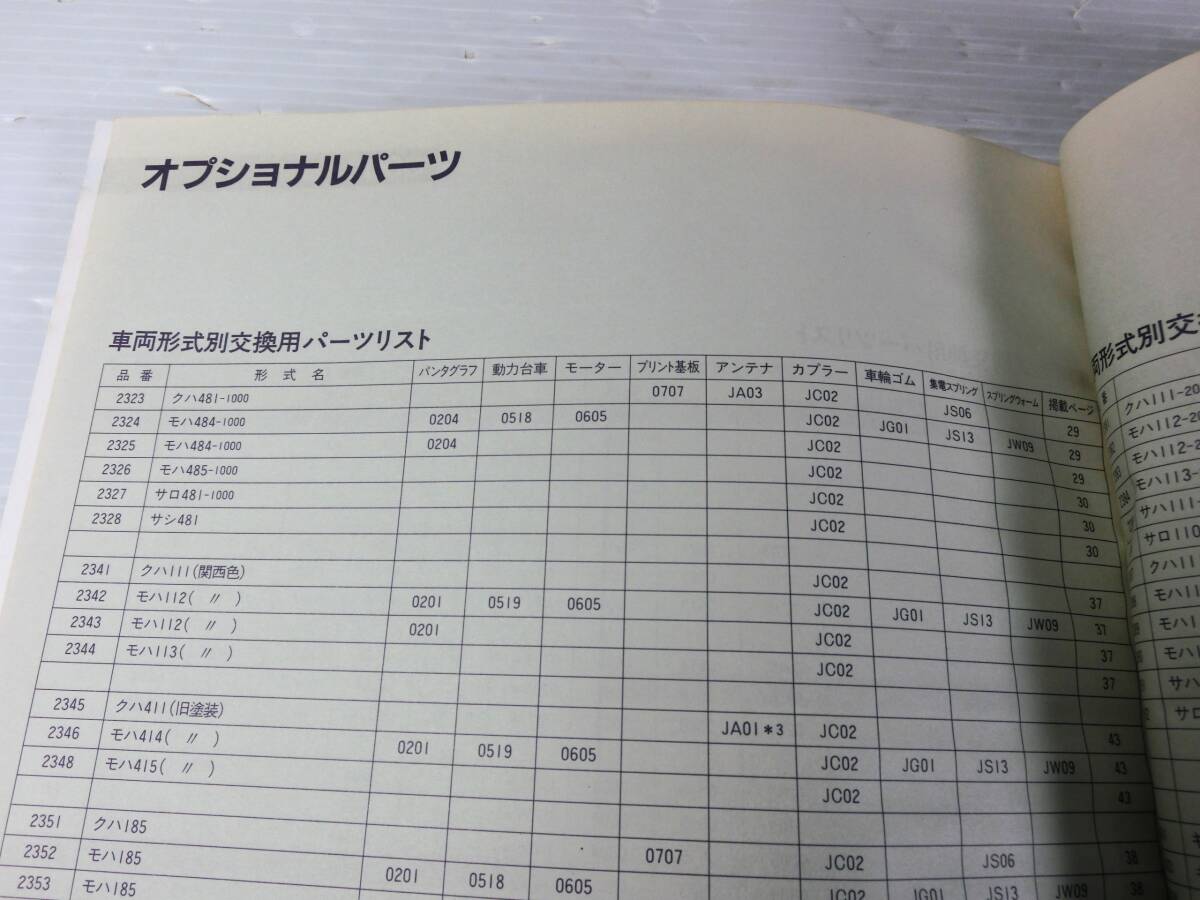 オプショナルパーツ
車両形式別交換用パーツリスト
品番 形式名 パンタグラフ 動力台車 モーター プリント基板 アンテナ カプラー 車輪ゴム 集電スプリング スプリングウォーム 掲載ページ
2323 クハ481-1000 0707 JA03 JC02 JS06 29
2324 モハ484-1000 0204 0518 0605 JC02 JG01 JS13 JW09 29
2325 モハ484-1000 0204 JC02 29
2326 モハ485-1000 JC02 30
2327 サロ481-1000 JC02 30
2328 サシ481 JC02 30
2341 クハ111(関西色) JC02 37
2342 モハ112( 〃 ) 0201 0519 0605 JC02 JG01 JS13 JW09 37
2343 モハ112( 〃 ) 0201 JC02 37
2344 モハ113( 〃 ) JC02 37
2345 クハ411(旧塗装) JA01*3 JC02 43
2346 モハ414( 〃 ) 0201 0519 0605 JC02 JG01 JS13 JW09 43
2348 モハ415( 〃 ) JC02 43
2351 クハ185 0707 JC02 JS06 38
2352 モハ185 0201 0518 0605 JC02 JG01 JS13 JW09 38
2353 モハ185
両形式別交
クハ111-20
モハ112-20
モハ112-2
モハ113-
サハ111-
サロ110
クハ11
モハ11
モハ1
モハ
サハ
サロ